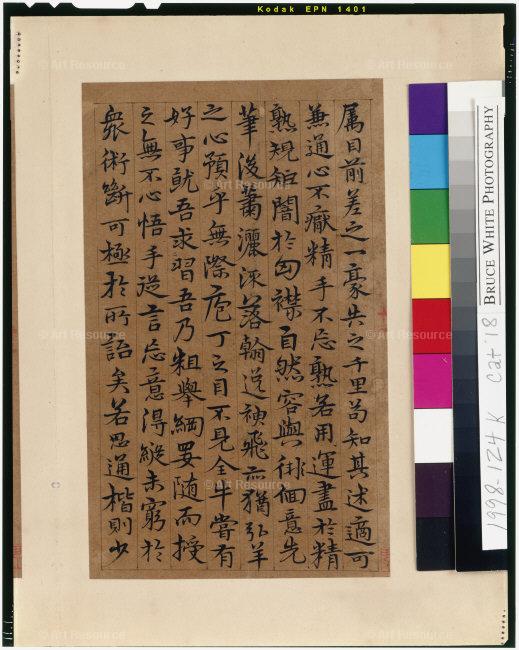 Kodak EPN 1401
属目前差之一豪失之千里苟知其述適可
兼通心不厭精手不忘熟若用運盡於精
熟規矩闇於匈襟自然容與俳佪意先
筆後蕭灑流落翰逸神飛亦猶弘羊
之心預乎無際庖丁之目不見全牛嘗有
好事就吾求習吾乃粗舉綱要随而授
之無不心悟手從言忘意得縱未窮於
衆術斷可極於所詣矣若思通楷則少
BRUCE WHITE PHOTOGRAPHY
1998-124 K Cat 18
© Art Resource